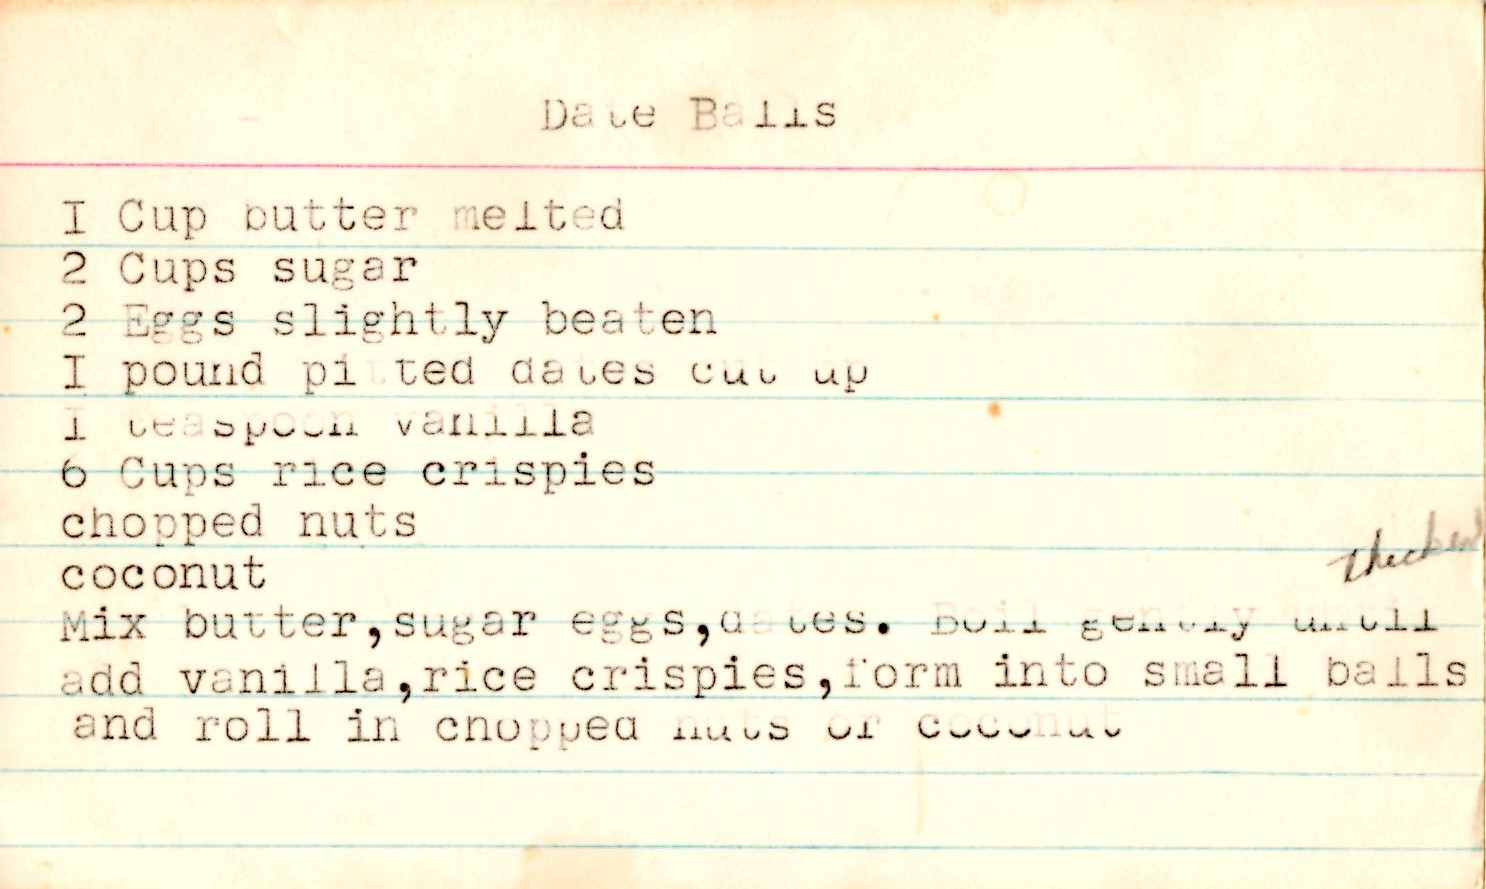 Date Balls
I Cup butter melted
2 Cups sugar
2 Eggs slightly beaten
I pound pitted dates cut up
I teaspoon vanilla
6 Cups rice crispies
chopped nuts
coconut
thicken
Mix butter,sugar eggs,dates. Boil gently until
add vanilla,rice crispies,form into small balls
and roll in chopped nuts or coconut